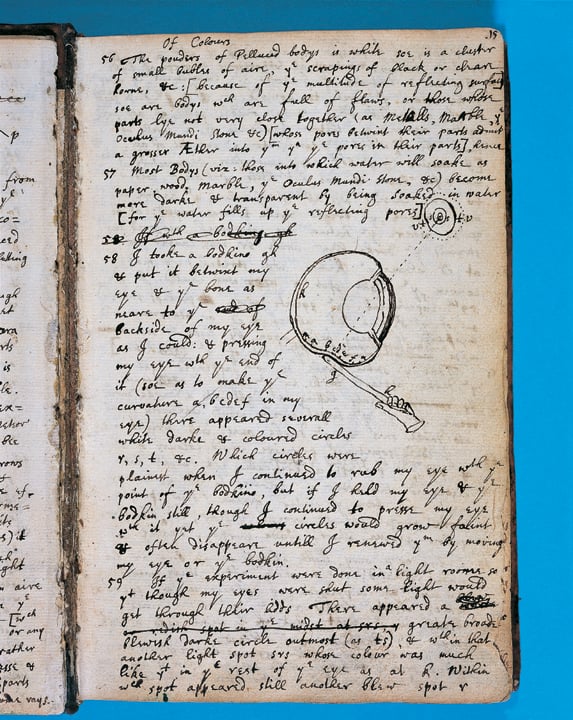 Of Colours
15
56 The pouders of Pellucid bodys is white soe is a cluster
of small bubles of aire, yᵉ scrapings of black or cleare
horne, &c: [because of yᵉ multitude of reflecting surfaces
soe are bodys wch are full of flaws, or those whose
parts lye not very close together (as Metalls, Marble, yᵉ
Oculus Mundi stone &c) [whose pores betwixt their parts admit
a grosser Æther into yᵐ yⁿ yᵉ pores in their parts], hence
57 Most Bodys (viz: those into which water will soake as
paper, wood, Marble, yᵉ Oculus Mundi Stone, &c) become
more darke & transparent by being soaked in water
[for yᵉ water fills up yᵉ reflecting pores]
58 I tooke a bodkine gh
& put it betwixt my
eye & yᵉ bone as
neare to yᵉ
backside of my eye
as I could: & pressing
my eye wth yᵉ end of
it (soe as to make yᵉ
curvature a, bcdef in my
eye) there appeared severall
white darke & coloured circles
r, s, t, &c. Which circles were
plainest when I continued to rub my eye wth yᵉ
point of yᵉ bodkine, but if I held my eye & yᵉ
bodkin still, though I continued to presse my eye
wth it yet yᵉ circles would grow faint
& often disappeare untill I renewed yᵐ by moving
my eye or yᵉ bodkin.
59 If yᵉ experiment were done in a light roome so
yᵗ though my eyes were shut some light would
get through their lidds There appeared a
greate broade
blewish darke circle outmost (as ts), & wthin that
another light spot srs whose colour was much
like yᵗ in yᵉ rest of yᵉ eye as at k. Within
wch spot appeared still another blew spot r